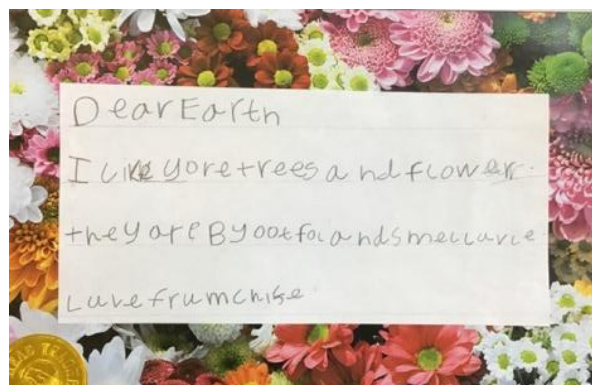 Dear Earth
I like yore trees and flower.
they are Byootfol and smel luvle
Luve frum